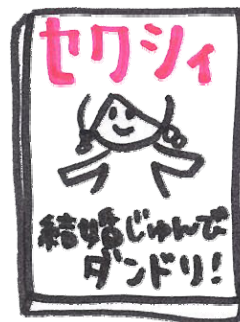 セクシィ
結婚じゅんび
ダンドリ!